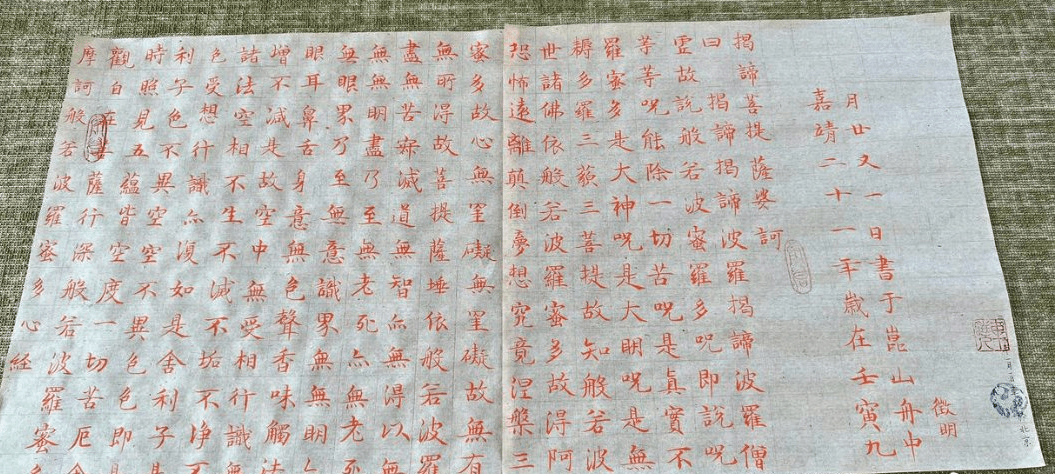 摩訶般若波羅蜜多心経
觀自在菩薩行深般若波羅蜜
時照見五蘊皆空度一切苦厄舍
利子色不異空空不異色色即是
色受想行識亦復如是舍利子是
諸法空相不生不滅不垢不淨不
增不減是故空中無色無受相行識無
眼耳鼻舌身意無色聲香味觸法
無眼界乃至無意識界無無明亦
無無明盡乃至無老死亦無老死
盡無苦寂滅道無智亦無得以無
無所得故菩提薩埵依般若波羅
蜜多故心無罣礙無罣礙故無有
恐怖遠離顛倒夢想究竟涅槃三
世諸佛依般若波羅蜜多故得阿
耨多羅三藐三菩提故知般若波
羅蜜多是大神呪是大明呪是無
等等呪能除一切苦呪是眞實不
虛故說般若波羅蜜多呪即說呪
曰揭諦揭諦波羅揭諦波羅僧
揭諦菩提薩婆訶
嘉靖二十一年歲在壬寅九
月廿又一日書于崑山舟中
徵明
北京